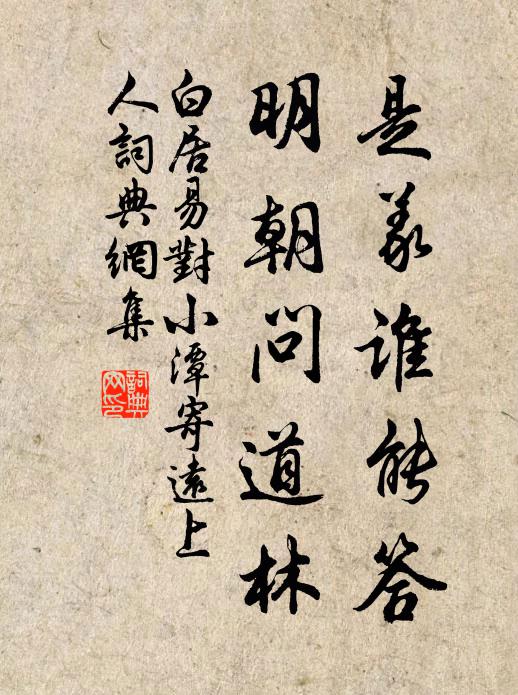 是義誰能答
明朝問道林
白居易對小潭寄遠上
人詞典網集
詞典
网印